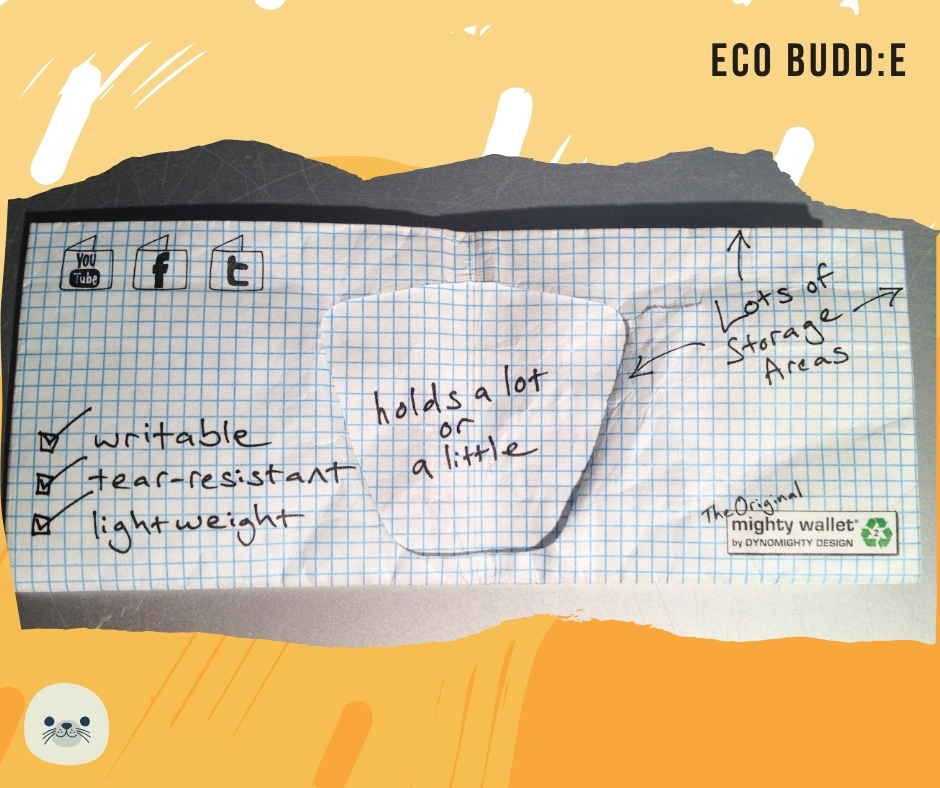 ECO BUDD:E
You
Tube
f
t
Lots of
Storage
Areas
holds a lot
or
a little
writable
tear-resistant
lightweight
The Original
mighty wallet®
by DYNOMIGHTY DESIGN
2